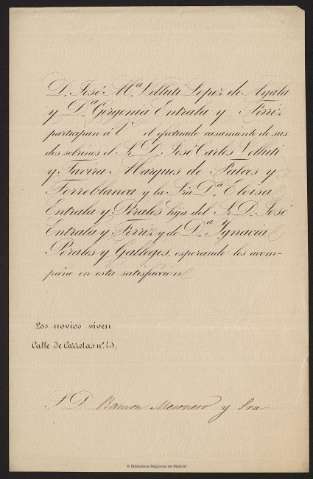 D. José Mª. Velluti Lopez de Ayala
y Dª. Efigenia Entrala y Ferriz
participan á V. el efectuado casamiento de sus
dos sobrinos el Sr. D. José Carlos Velluti
y Tavira Marques de Falces y
Torreblanca y la Srta. Dª. Eloisa
Entrala y Perales hija del Sr. D. José
Entrala y Ferriz y de Dª. Ignacia
Perales y Gallegos, esperando les acom-
pañe en esta satisfaccion
Los novios viven
Calle de Carretas nº.
S. D. Ramon Mesonero y Sra
Biblioteca Regional de Madrid